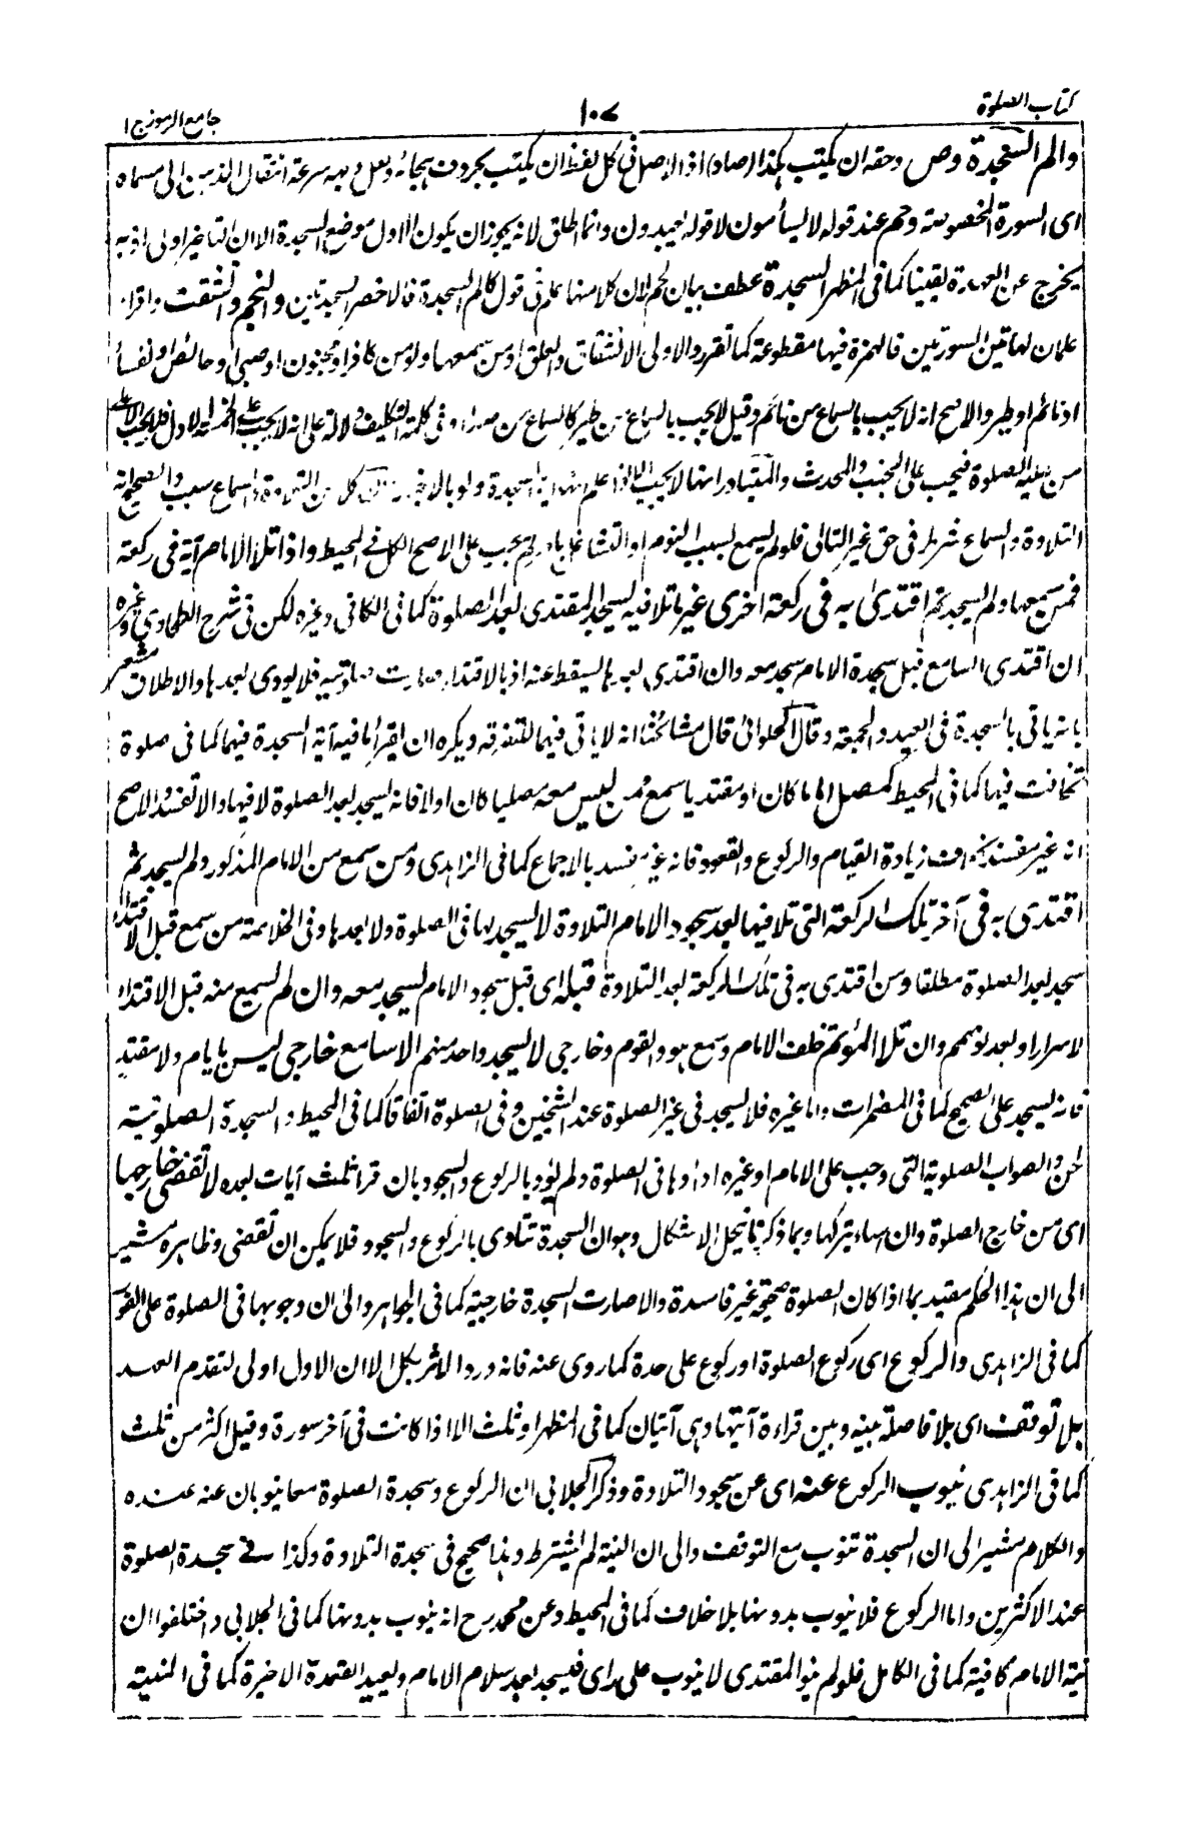 كتاب الصلوة
١٠٧
جامع الرموز ج ١
والم السجدة وص وحقه ان يكتب هكذا (صاد) اذ الاصل في كل لفظ ان يكتب بحروف هجائه ولعل وجهه سرعة انتقال الذهن الى مسماه
اى السورة المخصوصة وحم عند قوله لا يسأمون لا قوله تعبدون وانما اطلق لانه يجوز ان يكون الاول موضع السجدة الا ان التاخير اولى اذ به
يخرج عن العهدة يقينا كما في المظهر السجدة عطف بيان لحم لان كلا منها علم في قول كالم السجدة فالاخصر السجدتين والنجم وانشقت واقرأ
علمان لهاتين السورتين فالهمزة فيها مقطوعة كما تقرر والاولى الانشقاق والعلق او من سمعها ولو من كافر او مجنون او صبي او حائض او نفساء
او نائم او طير والاصح انه لا يجب بالسماع من نائم وقيل لا يجب بالسماع من طير كالسماع من صداء وفي كلمة التكليف دلالة على انه لا يجب على الخمسة الاول فلا يجب الا على
من عليه الصلوة فيجب على الجنب والمحدث والمتبادر انها لا يجب الا اذا علم انه آية السجدة ولو بالاخبار كل من التلاوة والسماع سبب والصحيح انه
التلاوة والسماع شرط في حق غير التالى فلو لم يسمع بسبب النوم او التشاغل بامر لم يجب على الاصح الكل في المحيط واذا تلا الامام آية في ركعة
فمن سمعها ولم يسجد ثم اقتدى به في ركعة اخرى غير ما تلا فيه ليسجد المقتدى بعد الصلوة كما في الكافي وغيره لكن في شرح الطحاوى وغيره
ان اقتدى السامع قبل سجدة الامام سجد معه وان اقتدى بعدها يسقط عنه اذ بالاقتداء صارت صلوتية فلا يودى بعدها والاطلاق مشعر
بانه ياتى بالسجدة في العيد والجمعة وقال الحلوائى قال مشائخنا انه لا ياتى فيها للتفرقة ويكره ان يقرأ ما فيه آية السجدة فيها كما في صلوة
تخافت فيها كما في المحيط كمصل اماما كان او مقتديا سمع ممن ليس معه مصليا كان اولا فانه يسجد بعد الصلوة لا فيها والا تفسد والاصح
انه غير مفسد بخلاف زيادة القيام والركوع والقعود فانه غير مفسد بالاجماع كما في الزاهدى ومن سمع من الامام المذكور ولم يسجد ثم
اقتدى به في آخر تلك الركعة التى تلا فيها بعد سجود الامام التلاوة لا يسجد بها في الصلوة ولا بعدها وفي الخلاصة من سمع قبل الاقتداء
سجد بعد الصلوة مطلقا ومن اقتدى به في تلك الركعة بعد التلاوة قبله اى قبل سجود الامام يسجد معه وان لم يسمع منه قبل الاقتداء
لاسرار او بعد او نحوهم وان تلا المؤتم خلف الامام وسمع هو والقوم وخارجى لا يسجد واحد منهم الا سامع خارجى ليس بامام ولا مقتد
فانه يسجد على الصحيح كما في المضمرات واما غيره فلا يسجد في غير الصلوة عند الشيخين وفي الصلوة اتفاقا كما في المحيط والسجدة الصلوتية
لحن والصواب الصلوية التى وجب على الامام او غيره اداؤها في الصلوة ولم يؤد بالركوع والسجود بان قرأ ثلث آيات بعده لا تقضى خارجها
اى من خارج الصلوة وان اساء بتركها وبما ذكرنا ينحل الاشكال وهو ان السجدة تتادى بالركوع والسجود فلا يمكن ان تقضى وظاهره مشير
الى ان هذا الحكم مقيد بما اذا كان الصلوة صحيحة غير فاسدة والا صارت السجدة خارجية كما في الجواهر والى ان وجوبها في الصلوة على الفور
كما في الزاهدى والركوع اى ركوع الصلوة او ركوع على حدة كما روى عنه فانه ورد الاثر بكل الا ان الاول اولى لتقدم العهد
بلا توقف اى بلا فاصلة بينه وبين قراءة آيتها وهى آيتان كما في المظهر او ثلث الا اذا كانت في آخر سورة وقيل اكثر من ثلث
كما في الزاهدى ينوب الركوع عنه اى عن سجود التلاوة وذكر الجلابى ان الركوع وسجدة الصلوة معا ينوبان عنه عنده
والكلام مشير الى ان السجدة تنوب مع التوقف والى ان النية لم يشترط وهذا صحيح في سجدة التلاوة وكذا في سجدة الصلوة
عند الاكثرين واما الركوع فلا ينوب بدونها بلا خلاف كما في المحيط وعن محمد رح انه ينوب بدونها كما في الجلابى واختلفوا ان
نية الامام كافية كما في الكامل فلو لم ينو المقتدى لا ينوب على راى فيسجد بعد سلام الامام ويعيد القعدة الاخيرة كما في المنية